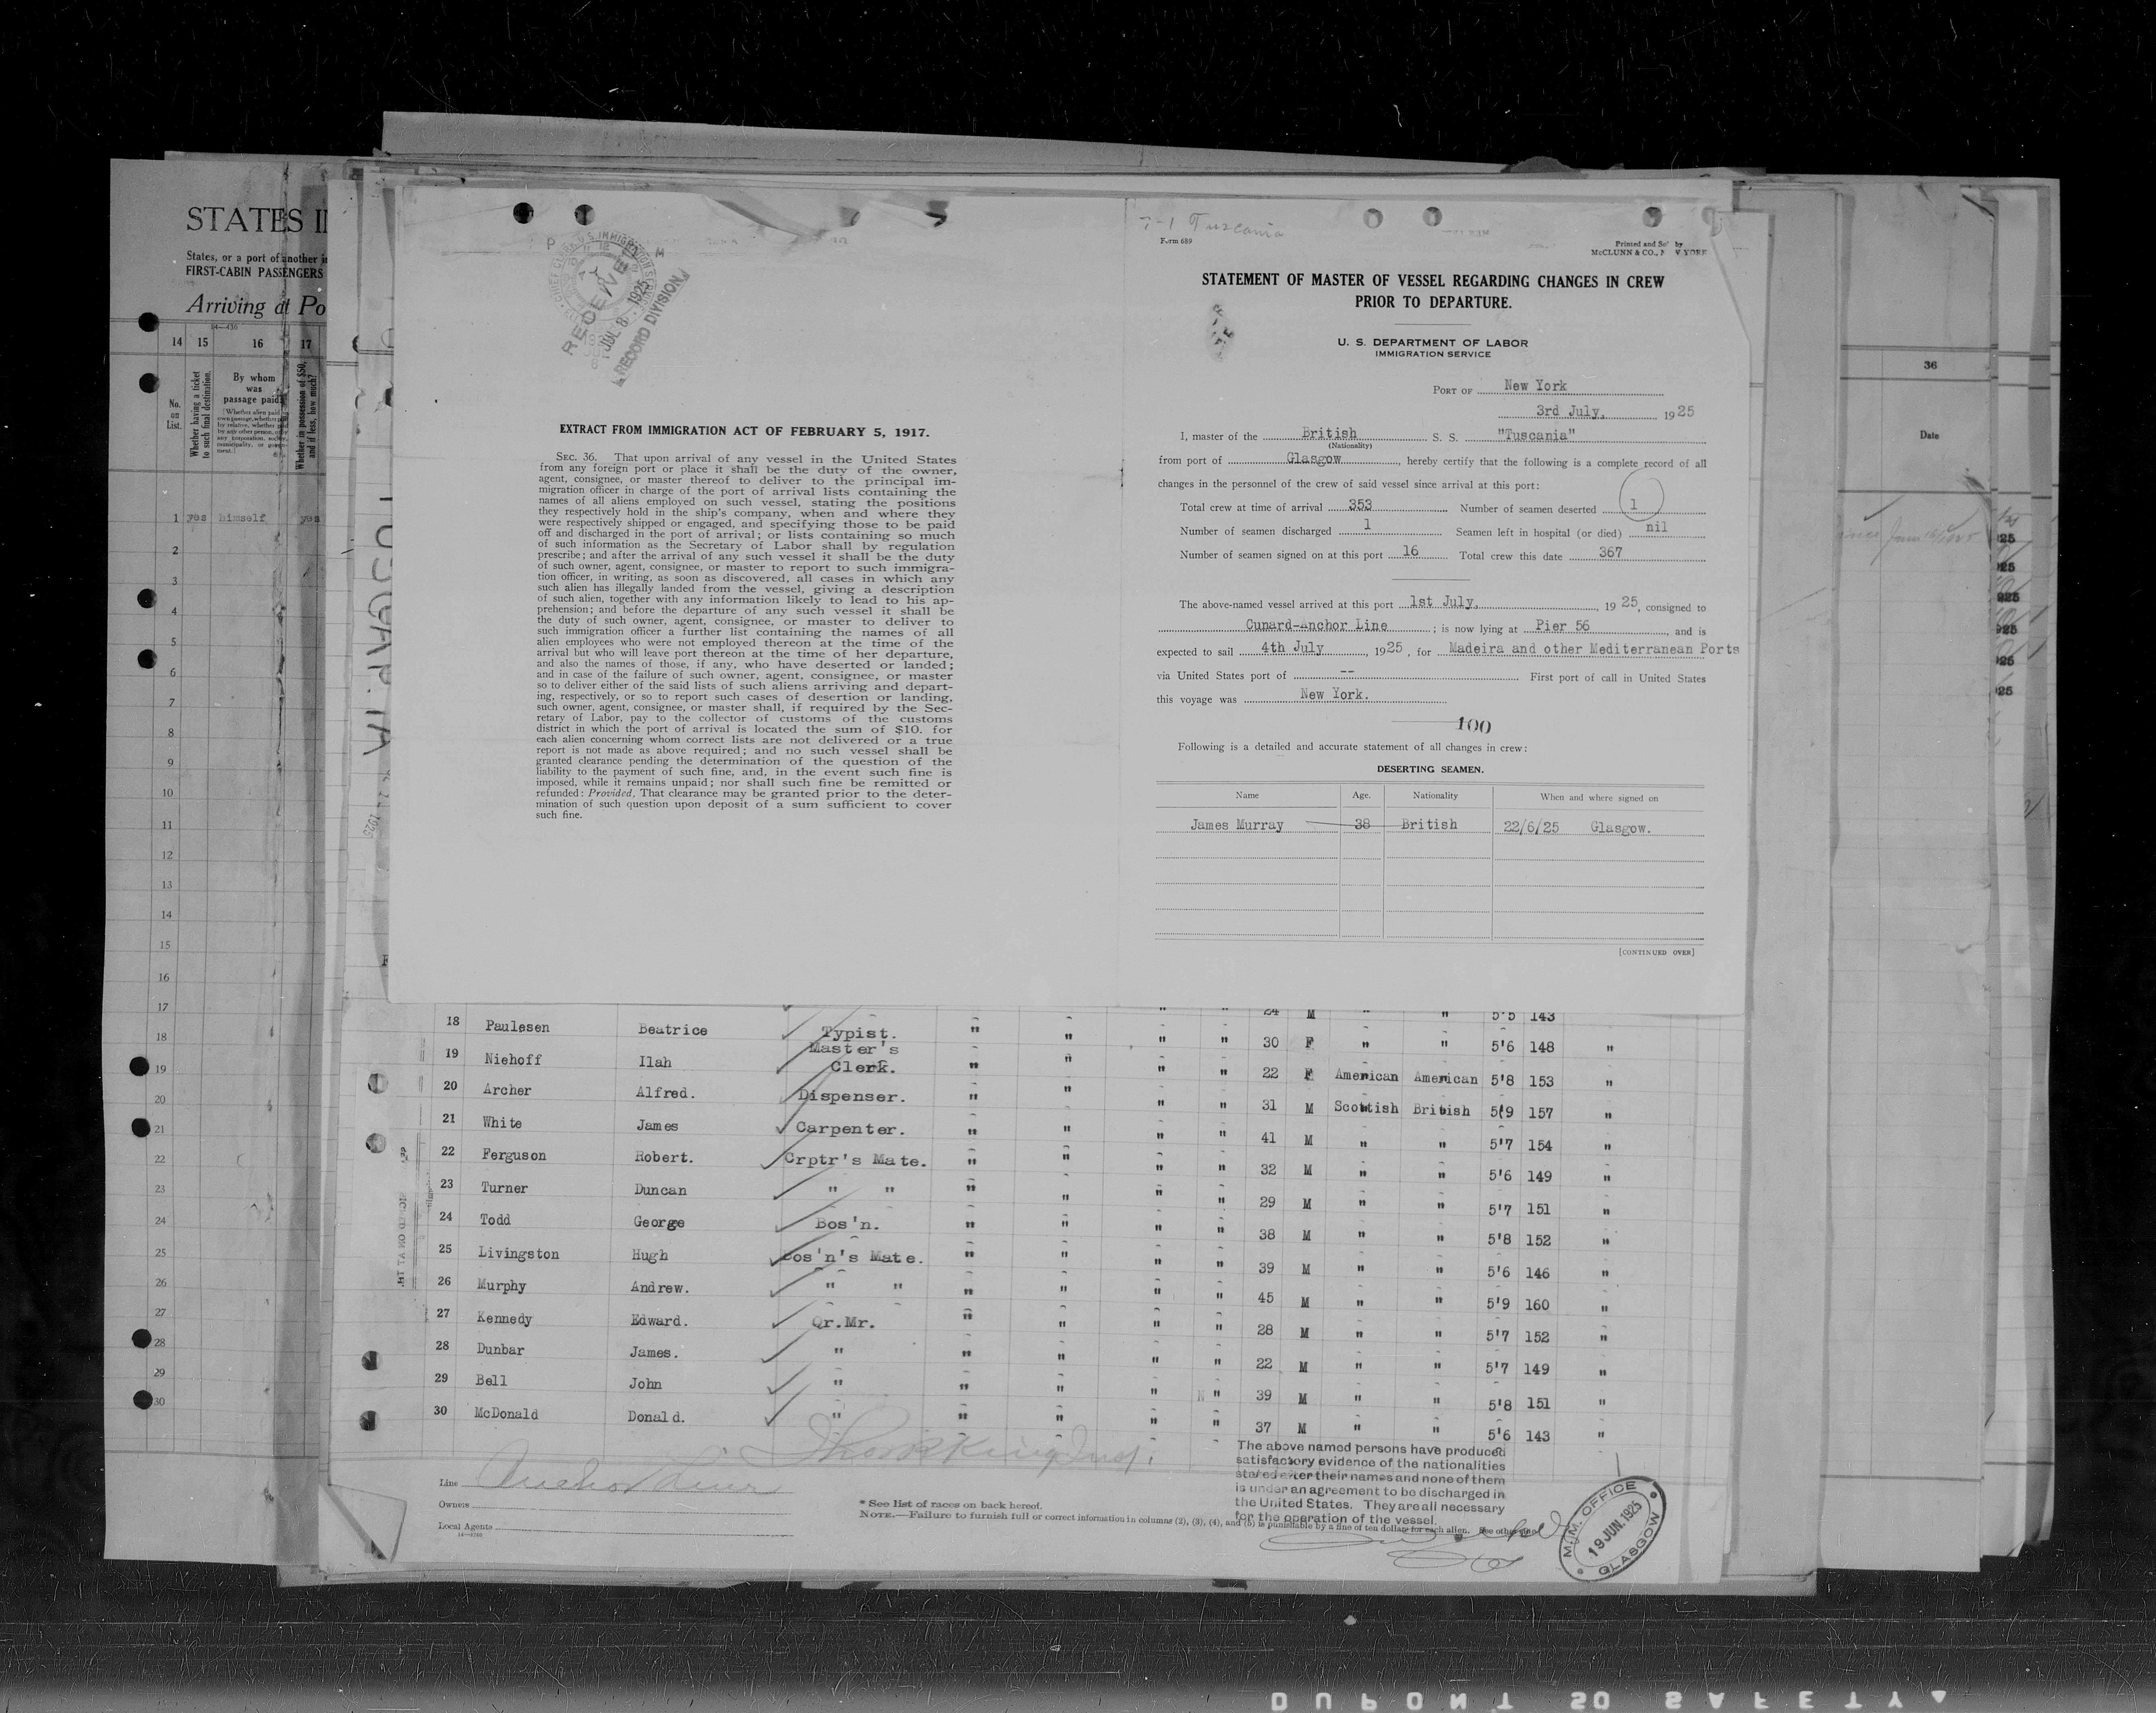 STATES I
States, or a port of another i
FIRST-CABIN PASSENGERS
Arriving at Po
14 15 16 17
No. on List.
Whether having a ticket to such final destination.
By whom was passage paid?
Whether in possession of $50, and if less, how much?
1 yes himself yes
2
3
4
5
6
7
8
9
10
11
12
13
14
15
16
17
18
19
20
21
22
23
24
25
26
27
28
29
30
RECEIVED
JUL 8 1925
RECORD DIVISION
EXTRACT FROM IMMIGRATION ACT OF FEBRUARY 5, 1917.
SEC. 36. That upon arrival of any vessel in the United States
from any foreign port or place it shall be the duty of the owner,
agent, consignee, or master thereof to deliver to the principal im-
migration officer in charge of the port of arrival lists containing the
names of all aliens employed on such vessel, stating the positions
they respectively hold in the ship's company, when and where they
were respectively shipped or engaged, and specifying those to be paid
off and discharged in the port of arrival; or lists containing so much
of such information as the Secretary of Labor shall by regulation
prescribe; and after the arrival of any such vessel it shall be the duty
of such owner, agent, consignee, or master to report to such immigra-
tion officer, in writing, as soon as discovered, all cases in which any
such alien has illegally landed from the vessel, giving a description
of such alien, together with any information likely to lead to his ap-
prehension; and before the departure of any such vessel it shall be
the duty of such owner, agent, consignee, or master to deliver to
such immigration officer a further list containing the names of all
alien employees who were not employed thereon at the time of the
arrival but who will leave port thereon at the time of her departure,
and also the names of those, if any, who have deserted or landed;
and in case of the failure of such owner, agent, consignee, or master
so to deliver either of the said lists of such aliens arriving and depart-
ing, respectively, or so to report such cases of desertion or landing,
such owner, agent, consignee, or master shall, if required by the Sec-
retary of Labor, pay to the collector of customs of the customs
district in which the port of arrival is located the sum of $10. for
each alien concerning whom correct lists are not delivered or a true
report is not made as above required; and no such vessel shall be
granted clearance pending the determination of the question of the
liability to the payment of such fine, and, in the event such fine is
imposed, while it remains unpaid; nor shall such fine be remitted or
refunded: Provided, That clearance may be granted prior to the deter-
mination of such question upon deposit of a sum sufficient to cover
such fine.
Tuscania
Form 689
Printed and Sol by
McCLUNN & CO., N V YORK
STATEMENT OF MASTER OF VESSEL REGARDING CHANGES IN CREW
PRIOR TO DEPARTURE.
U. S. DEPARTMENT OF LABOR
IMMIGRATION SERVICE
PORT OF New York
3rd July, 1925
I, master of the British S. S. "Tuscania"
(Nationality)
from port of Glasgow, hereby certify that the following is a complete record of all
changes in the personnel of the crew of said vessel since arrival at this port:
Total crew at time of arrival 353 Number of seamen deserted 1
Number of seamen discharged 1 Seamen left in hospital (or died) nil
Number of seamen signed on at this port 16 Total crew this date 367
The above-named vessel arrived at this port 1st July, 1925, consigned to
Cunard-Anchor Line; is now lying at Pier 56, and is
expected to sail 4th July, 1925, for Madeira and other Mediterranean Ports
via United States port of -- First port of call in United States
this voyage was New York.
100
Following is a detailed and accurate statement of all changes in crew:
DESERTING SEAMEN.
Name Age. Nationality When and where signed on
James Murray 38 British 22/6/25 Glasgow.
[CONTINUED OVER]
36
Date
24 M " " 5'5 143
18 Paulesen Beatrice Typist. " " " " 30 F " " 5'6 148 "
19 Niehoff Ilah Master's Clerk. " " " " 22 F American American 5'8 153 "
20 Archer Alfred. Dispenser. " " " " 31 M Scottish British 5'9 157 "
21 White James Carpenter. " " " " 41 M " " 5'7 154 "
22 Ferguson Robert. Crptr's Mate. " " " " 32 M " " 5'6 149 "
23 Turner Duncan " " " " " " 29 M " " 5'7 151 "
24 Todd George Bos'n. " " " " 38 M " " 5'8 152 "
25 Livingston Hugh Bos'n's Mate. " " " " 39 M " " 5'6 146 "
26 Murphy Andrew. " " " " " " 45 M " " 5'9 160 "
27 Kennedy Edward. Qr.Mr. " " " " 28 M " " 5'7 152 "
28 Dunbar James. " " " " " 22 M " " 5'7 149 "
29 Bell John " " " " " 39 M " " 5'8 151 "
30 McDonald Donald. " " " " " 37 M " " 5'6 143 "
Line Anchor Line
Owners
Local Agents
* See list of races on back hereof.
NOTE.—Failure to furnish full or correct information in columns (2), (3), (4), and (5) is punishable by a fine of ten dollars for each alien. See other side
The above named persons have produced
satisfactory evidence of the nationalities
stated after their names and none of them
is under an agreement to be discharged in
the United States. They are all necessary
for the operation of the vessel.
M.M. OFFICE
19 JUN. 1925
GLASGOW
DUPONT SO SAFETY